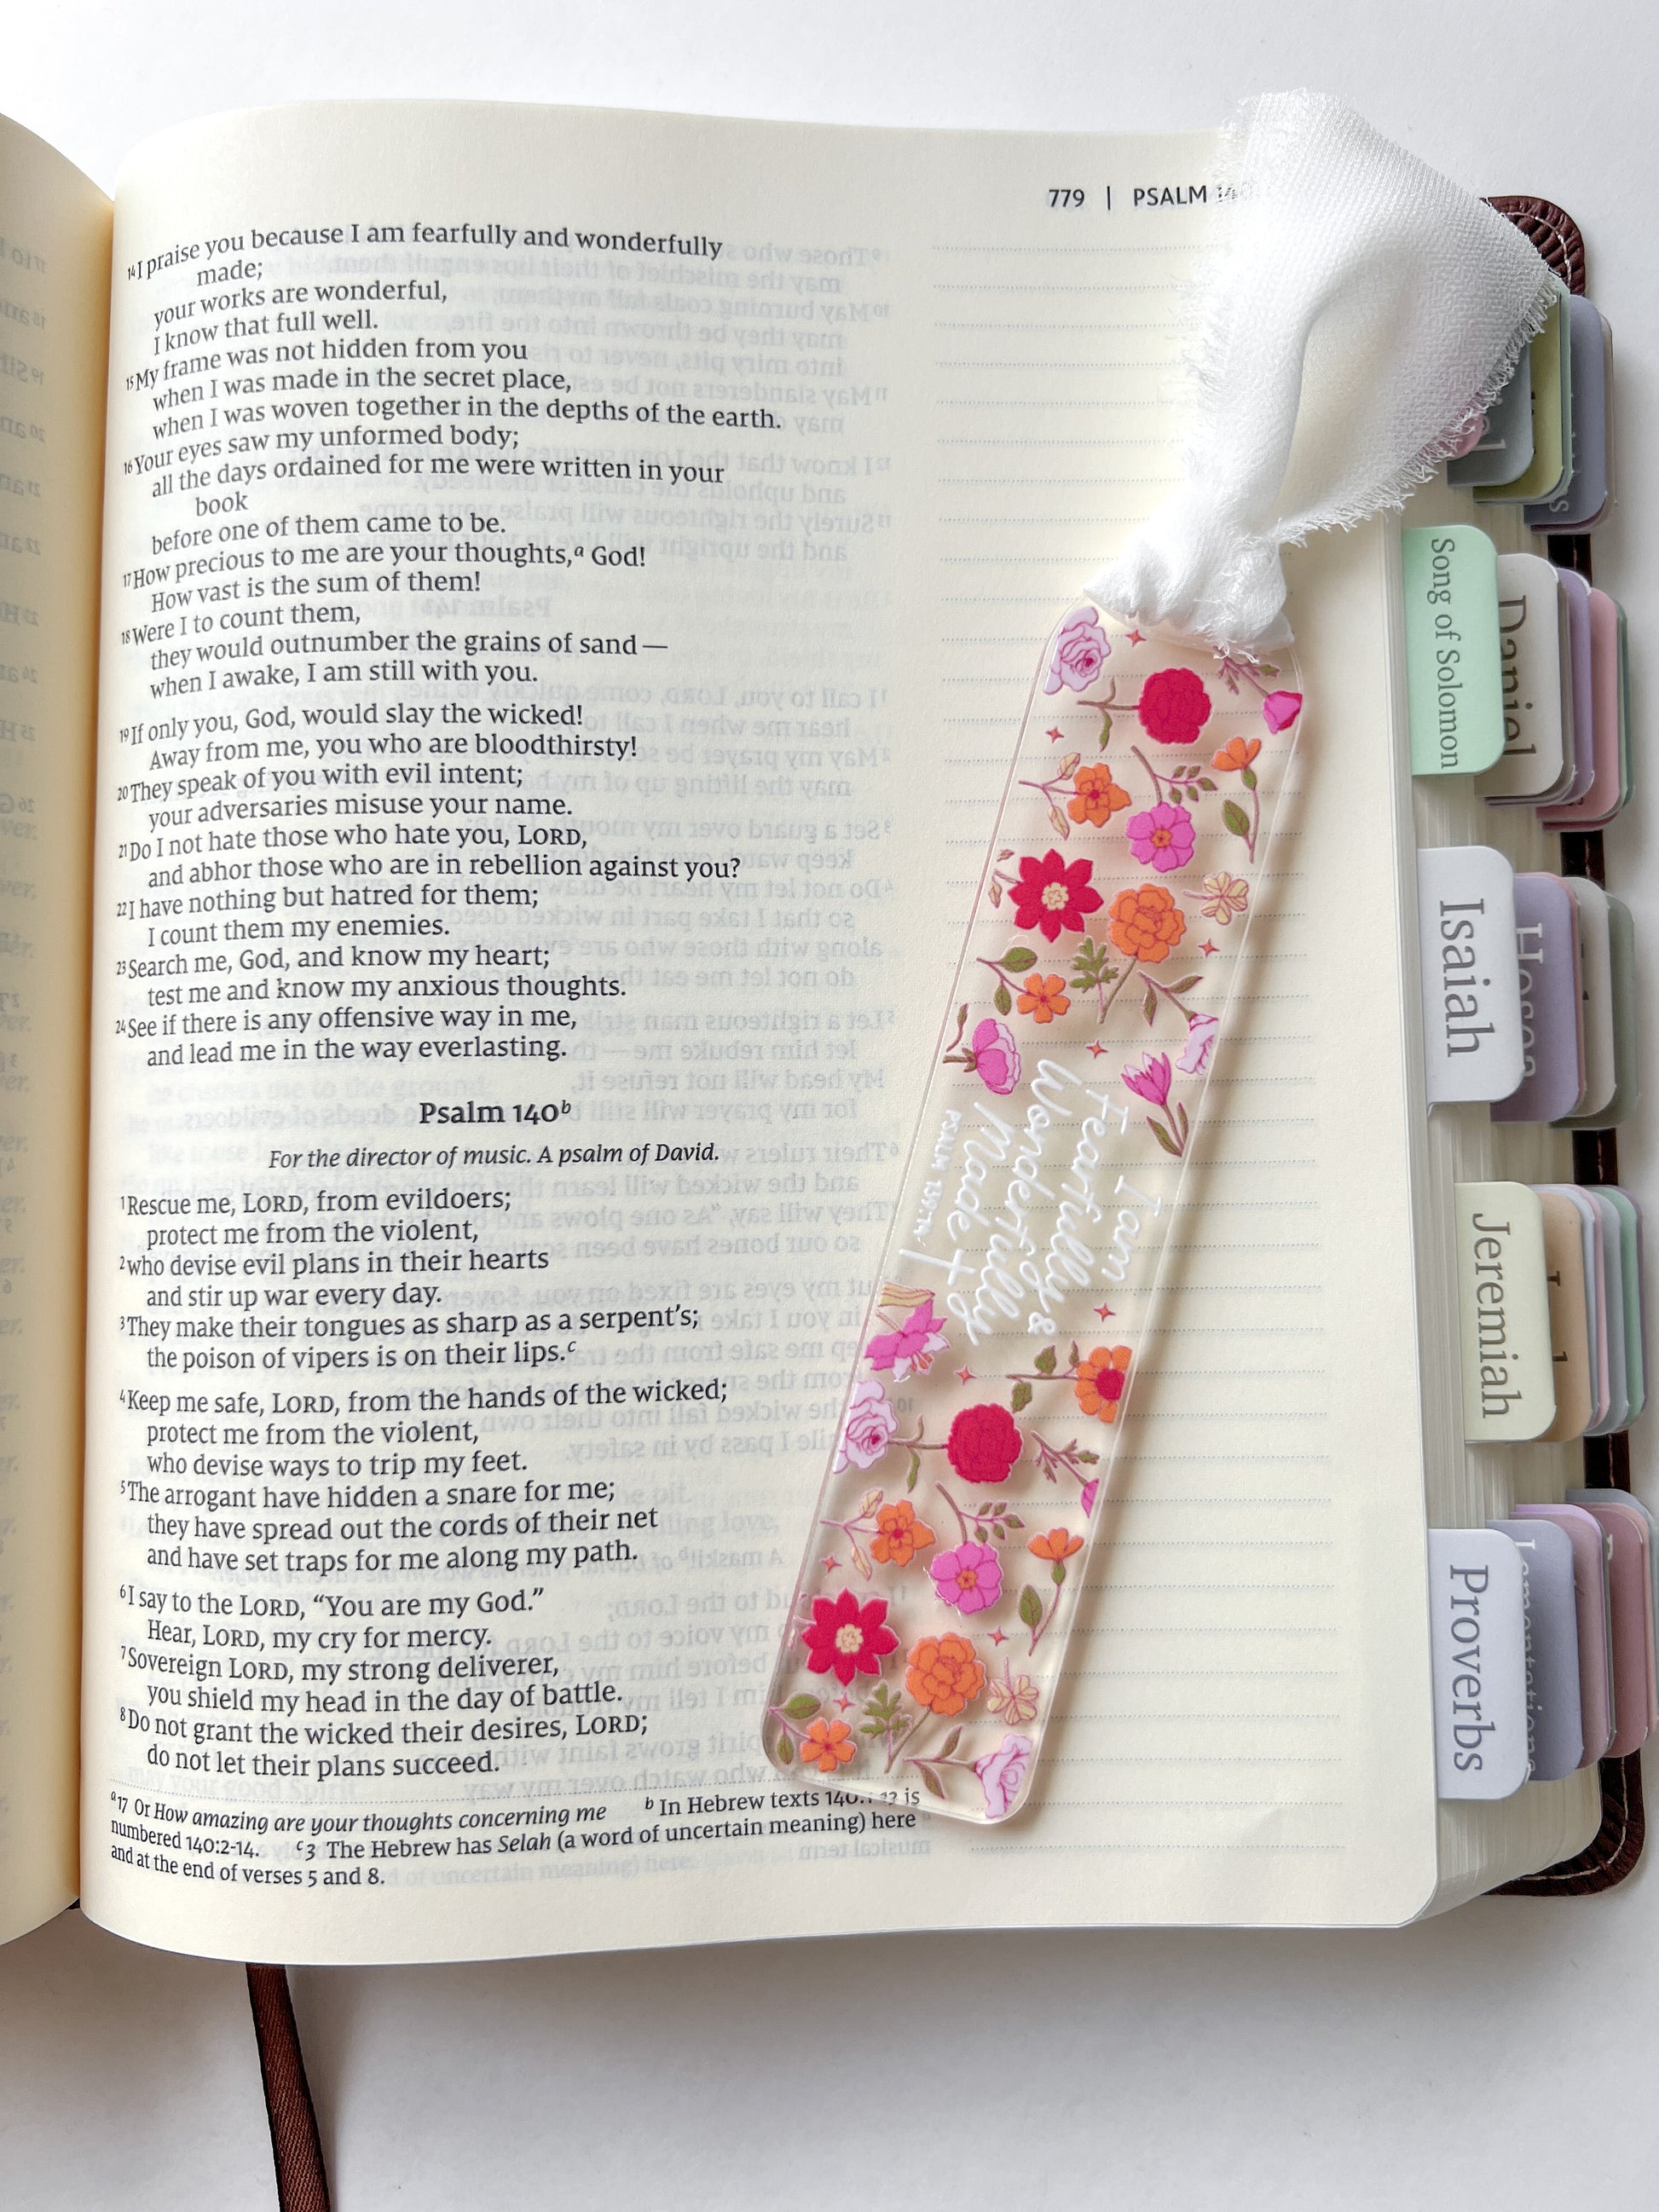 779 | PSALM
14I praise you because I am fearfully and wonderfully
made;
your works are wonderful,
I know that full well.
15My frame was not hidden from you
when I was made in the secret place,
when I was woven together in the depths of the earth.
16Your eyes saw my unformed body;
all the days ordained for me were written in your
book
before one of them came to be.
17How precious to me are your thoughts,a God!
How vast is the sum of them!
18Were I to count them,
they would outnumber the grains of sand—
when I awake, I am still with you.
19If only you, God, would slay the wicked!
Away from me, you who are bloodthirsty!
20They speak of you with evil intent;
your adversaries misuse your name.
21Do I not hate those who hate you, LORD,
and abhor those who are in rebellion against you?
22I have nothing but hatred for them;
I count them my enemies.
23Search me, God, and know my heart;
test me and know my anxious thoughts.
24See if there is any offensive way in me,
and lead me in the way everlasting.
Psalm 140b
For the director of music. A psalm of David.
1Rescue me, LORD, from evildoers;
protect me from the violent,
2who devise evil plans in their hearts
and stir up war every day.
3They make their tongues as sharp as a serpent's;
the poison of vipers is on their lips.c
4Keep me safe, LORD, from the hands of the wicked;
protect me from the violent,
who devise ways to trip my feet.
5The arrogant have hidden a snare for me;
they have spread out the cords of their net
and have set traps for me along my path.
6I say to the LORD, “You are my God.”
Hear, LORD, my cry for mercy.
7Sovereign LORD, my strong deliverer,
you shield my head in the day of battle.
8Do not grant the wicked their desires, LORD;
do not let their plans succeed.
a17 Or How amazing are your thoughts concerning me b In Hebrew texts is
numbered 140:2-14. c3 The Hebrew has Selah (a word of uncertain meaning) here
and at the end of verses 5 and 8.
I am
fearfully &
wonderfully
made
PSALM 139:14
Song of Solomon
Daniel
Isaiah
Hosea
Jeremiah
Proverbs
Lamentations